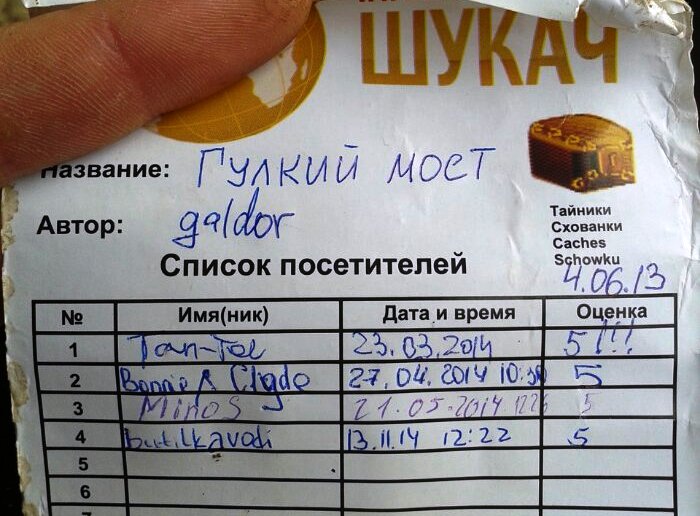 ШУКАЧ
Название: Гулкий мост
Автор: galdor
Тайники
Схованки
Caches
Schowku
4.06.13
Список посетителей
№ Имя(ник) Дата и время Оценка
1 Tan-Tol 23.03.2014 5!!!
2 Bonnie & Clyde 27.04.2014 10:30 5
3 Minos 21.05.2014 1226 5
4 butilkavodi 13.11.14 12:22 5
5
6